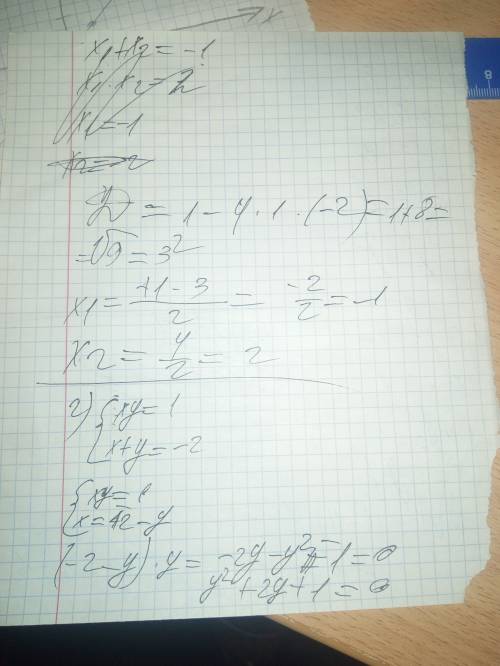 x1+x2=-1
x1·x2=2
x1=-1
x2=2
D = 1-4·1·(-2)=1+8=
=√9=3²
x1= +1-3/2 = -2/2=-1
x2= 4/2= 2
2) { xy=1
x+y=-2
{ xy=1
x=-2-y
(-2-y)·y= -2y-y²-1=0
y²+2y+1=0
8
x